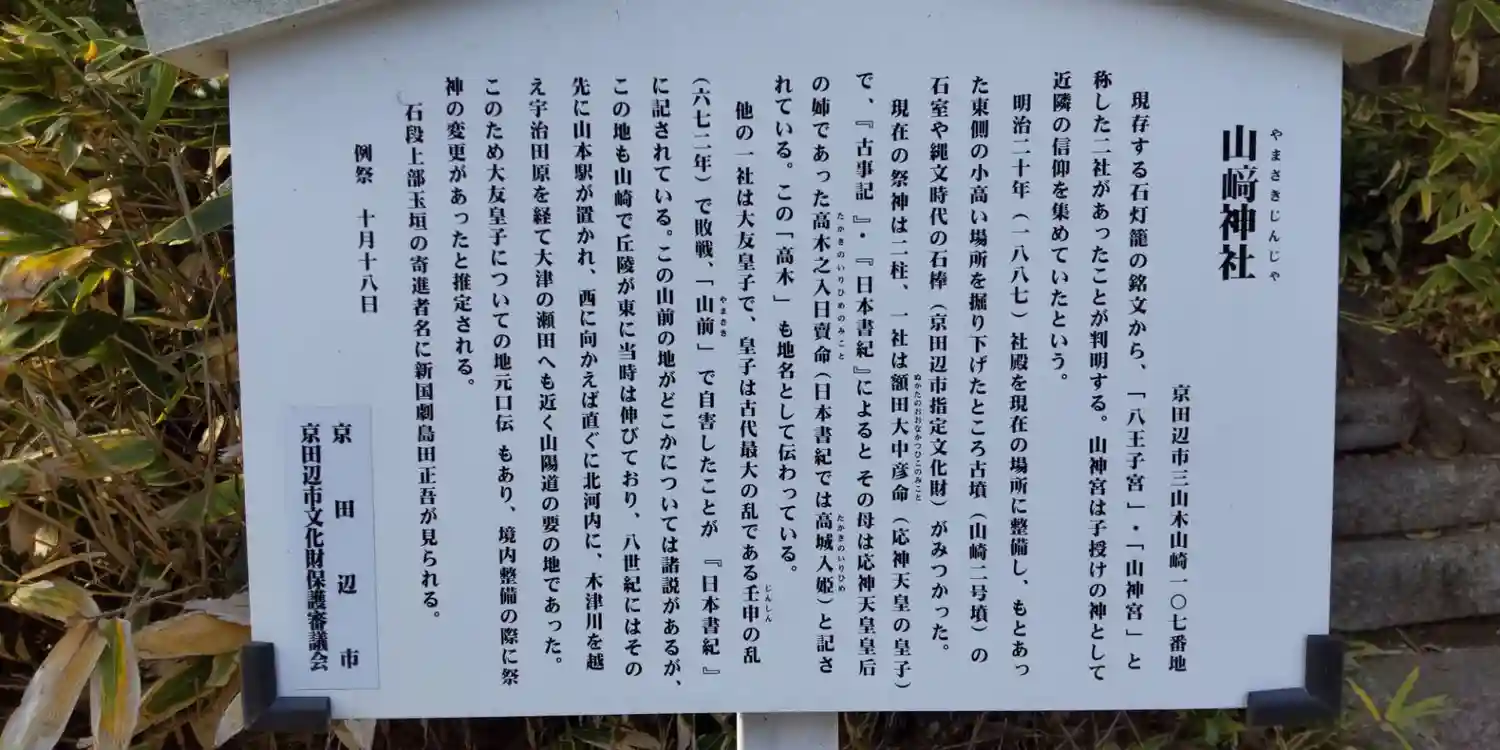 やまさきじんじゃ
山﨑神社
京田辺市三山木山崎一〇七番地
現存する石灯籠の銘文から、「八王子宮」・「山神宮」と
称した二社があったことが判明する。山神宮は子授けの神として
近隣の信仰を集めていたという。
明治二十年（一八八七）社殿を現在の場所に整備し、もとあっ
た東側の小高い場所を掘り下げたところ古墳（山崎二号墳）の
石室や縄文時代の石棒（京田辺市指定文化財）がみつかった。
ぬかたのおおなかつひこのみこと
現在の祭神は二柱、一社は額田大中彦命（応神天皇の皇子）
で、『古事記』・『日本書紀』によると その母は応神天皇皇后
たかきのいりひめのみこと
たかきのいりひめ
の姉であった高木之入日賣命（日本書紀では高城入姫）と記さ
れている。この「高木」も地名として伝わっている。
じんしん
他の一社は大友皇子で、皇子は古代最大の乱である壬申の乱
やまさき
（六七二年）で敗戦、「山前」で自害したことが『日本書紀』
に記されている。この山前の地がどこかについては諸説があるが、
この地も山崎で丘陵が東に当時は伸びており、八世紀にはその
先に山本駅が置かれ、西に向かえば直ぐに北河内に、木津川を越
え宇治田原を経て大津の瀬田へも近く山陽道の要の地であった。
このため大友皇子についての地元口伝 もあり、境内整備の際に祭
神の変更があったと推定される。
石段上部玉垣の寄進者名に新国劇島田正吾が見られる。
例祭 十月十八日
京田辺市
京田辺市文化財保護審議会